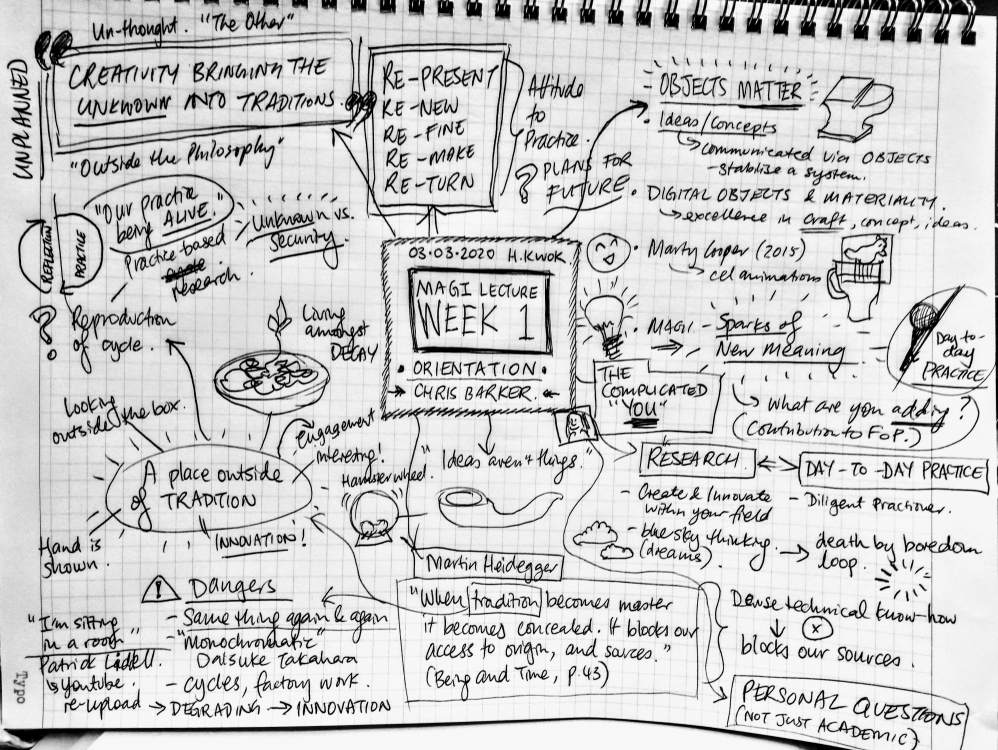 Un-thought. "The Other"
UNPLANNED
CREATIVITY BRINGING THE
UNKNOWN INTO TRADITIONS.
"Outside the Philosophy"
RE-PRESENT
RE-NEW
RE-FINE
RE-MAKE
RE-TURN
Attitude
to
Practice.
? PLANS FOR
FUTURE
- OBJECTS MATTER
• Ideas/Concepts
communicated via OBJECTS
- stabilise a system.
• DIGITAL OBJECTS & MATERIALITY.
excellence in craft, concept, ideas.
• Marty Cooper (2015)
cel animations
• MAGI - Sparks of
New Meaning
Day-to-
day
PRACTICE
what are you adding?
(Contribution to FoP.)
"Our practice
being ALIVE."
Practice-based
research.
Unknown vs.
Security.
REFLECTION
PRACTICE
?
Reproduction
of cycle.
Living
amongst
DECAY
03·03·2020 H.KWOK
MAGI LECTURE
WEEK 1
• ORIENTATION •
CHRIS BARKER.
THE
COMPLICATED
"YOU"
Looking
outside the box.
engagement
interesting!
A place outside
of TRADITION
INNOVATION!
Hand is
shown.
Hamster wheel.
"Ideas aren't things."
Martin Heidegger
"When tradition becomes master
it becomes concealed. It blocks our
access to origin, and sources."
(Being and Time, P.43)
RESEARCH.
DAY-TO-DAY PRACTICE
- Create & Innovate
within your field
- blue sky thinking.
(dreams)
- Diligent Practioner.
death by boredom
loop.
Dense technical know-how
x
blocks our sources.
PERSONAL QUESTIONS
(NOT JUST ACADEMIC)
! Dangers
- Same thing again & again
- "Monochromatic"
Daisuke Takahara
- cycles, factory work.
"I'm sitting
in a room"
Patrick Lidell.
youtube.
re-upload → DEGRADING → INNOVATION
Typo